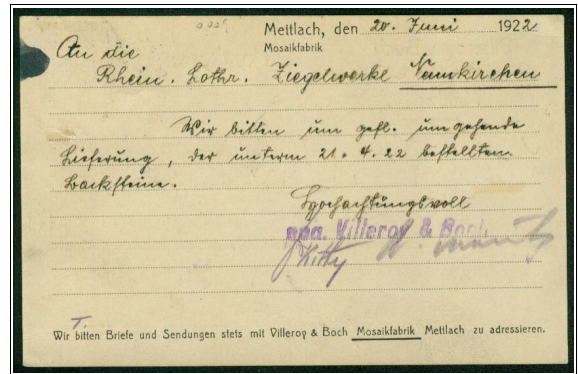 Mettlach, den 20. Juni 1922
Mosaikfabrik
An die
Rhein. Lothr. Ziegelwerke Neunkirchen
Wir bitten um gefl. umgehende
Lieferung, der unterm 21. 4. 22 bestellten
Backsteine.
Hochachtungsvoll
ppa. Villeroy & Boch
Wir bitten Briefe und Sendungen stets mit Villeroy & Boch Mosaikfabrik Mettlach zu adressieren.